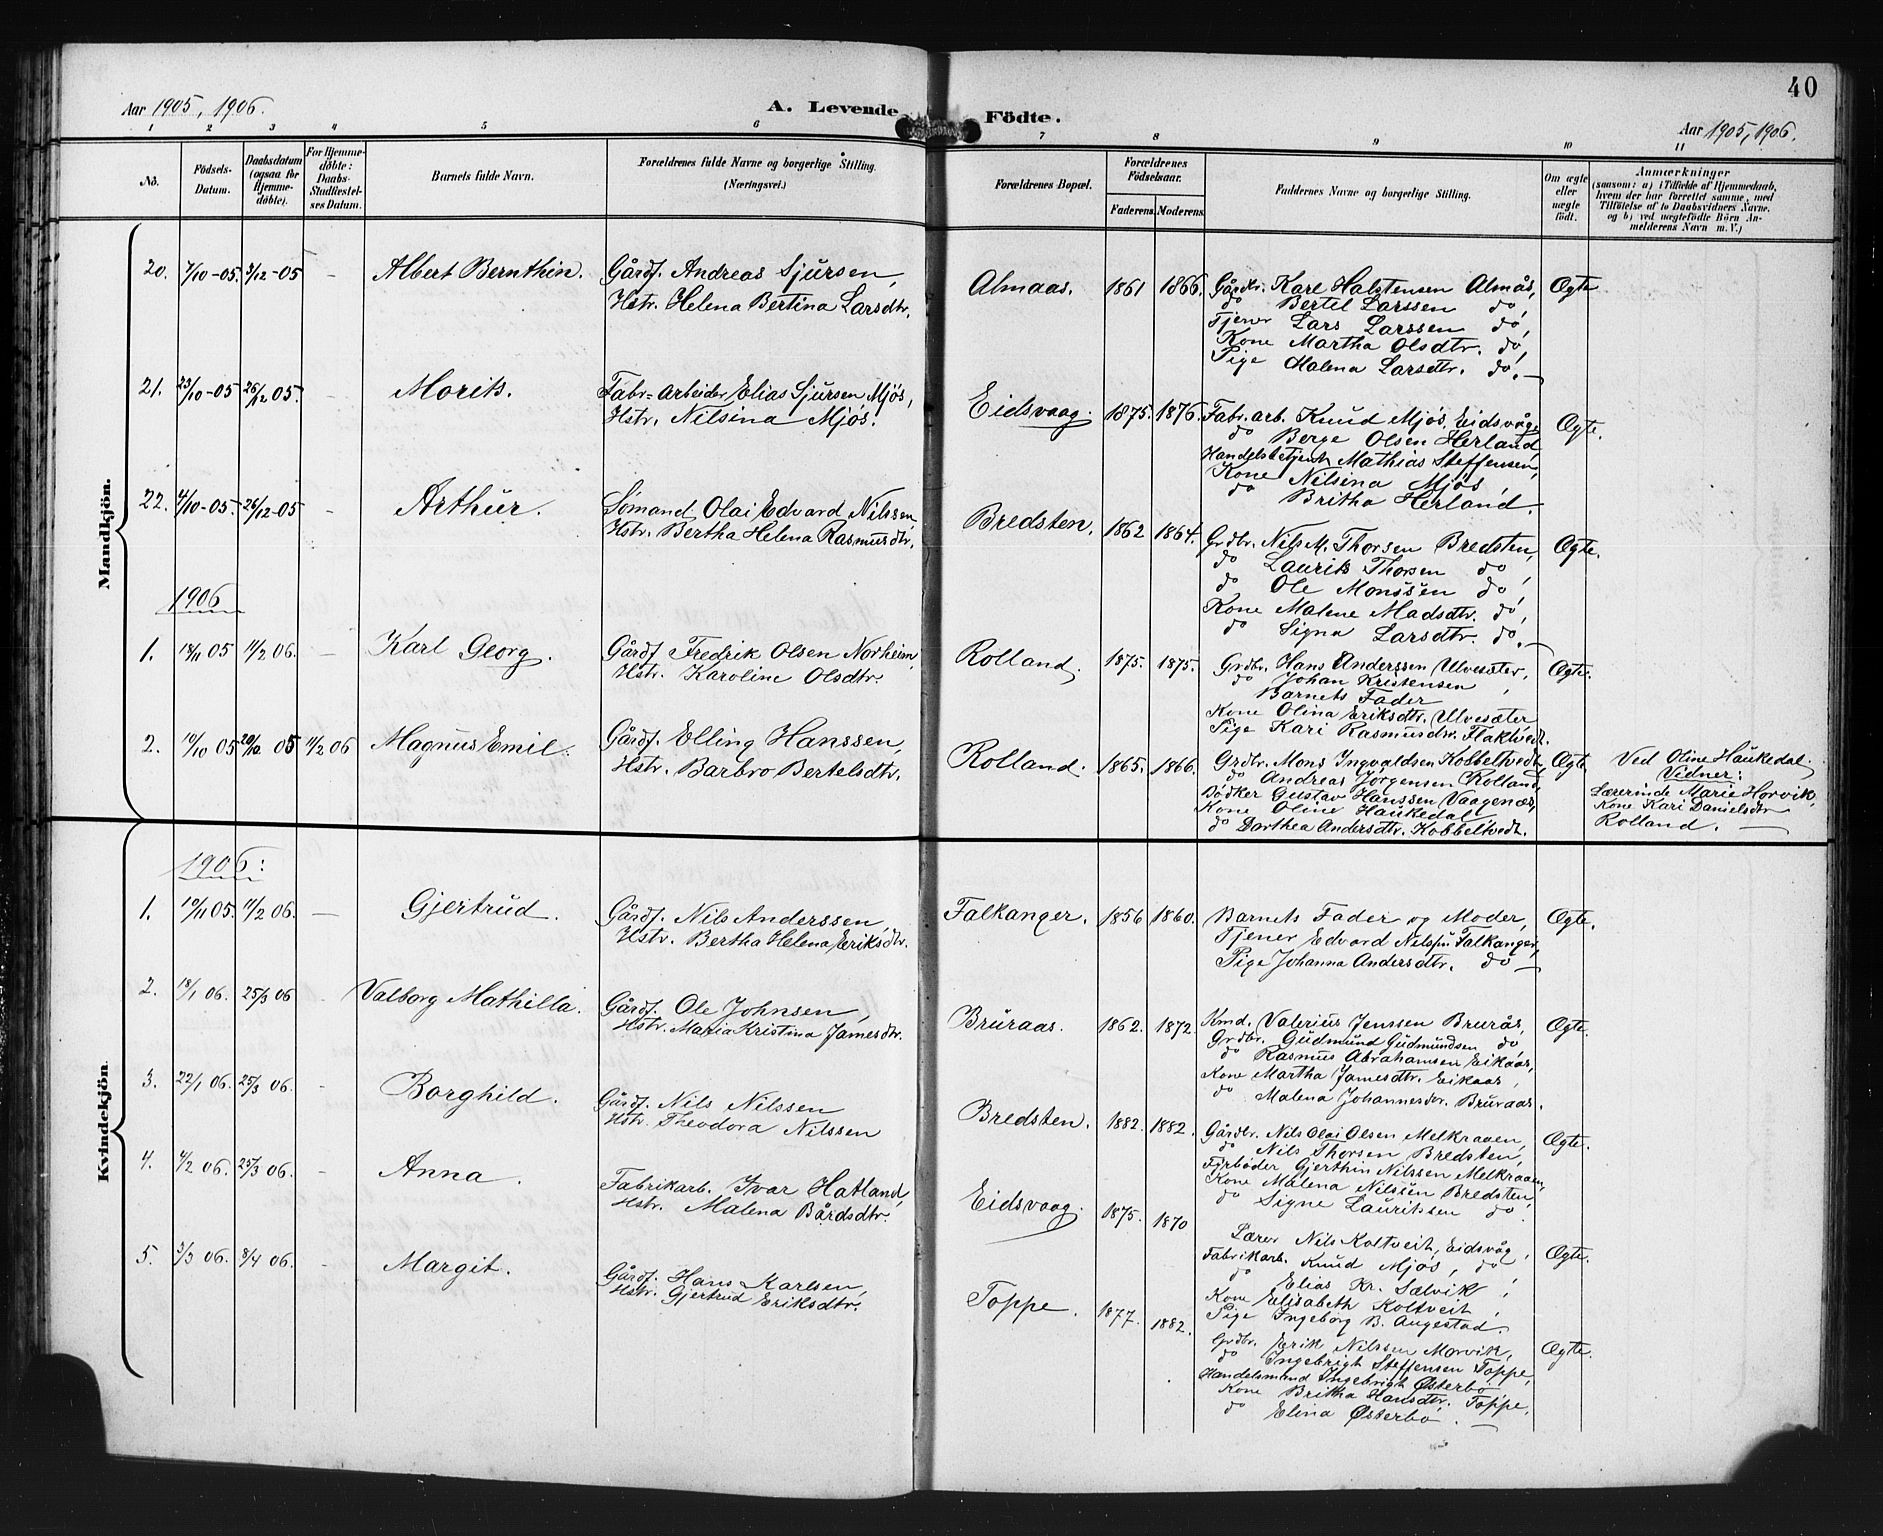 40
Aar 1905, 1906. A. Levende Födte. Aar 1905, 1906.
1 2 3 4 5 6 7 8 9 10 11
No. Födsels-Datum. Daabsdatum (ogsaa for Hjemme-döbte). For Hjemme-döbte: Daabs-Stadfæstel-ses Datum. Barnets fulde Navn. Forældrenes fulde Navne og borgerlige Stilling. (Næringsvei.) Forældrenes Bopæl. Forældrenes Födselsaar. Faderens Moderens. Faddernes Navne og borgerlige Stilling. Om ægte eller uægte födt. Anmærkninger (saasom: a) i Tilfælde af Hjemmedaab, hvem der har forrettet samme, med Tilföielse af to Daabsvidners Navne, og b) ved uægtefödte Börn An-melderens Navn m. V.)
Mandkjön.
20. 7/10-05. 3/12-05 Albert Bernthin. Gårdf. Andreas Sjursen, Almaas. 1861 1866. Gårdbr. Karl Halstensen Almås, Ægte
Hstr. Helena Bertina Larsdtr. do Bertel Larssen do,
Tjener Lars Larssen do,
Kone Martha Olsdtr. do,
Pige Malena Larsdtr. do.
21. 23/10-05 26/12 05. Morits. Fabr-Arbeider Elias Sjursen Mjös, Eidsvaag. 1875. 1876. Fabr. arb. Knud Mjös, Eidsvåg, Ægte.
Hstr. Nilsina Mjös. do Berge Olsen Herland,
Handelsbetjent Mathias Steffensen,
Kone Nilsina Mjös,
do Britha Herland.
22. 4/10-05. 26/12-05 Arthur. Sömand Olai Edvard Nilssen, Bredsten. 1862 1864. Grdbr. Nils M. Thorsen Bredsten, Ægte.
Hstr. Bertha Helena Rasmusdtr. do Laurits Thorsen do,
do Ole Monssen do,
Kone Malene Madsdtr. do,
do Signa Larsdtr. do.
1906
1. 18/11 05 11/2 06. Karl Georg. Gårdf. Fredrik Olsen Norheim, Rolland. 1875. 1875. Grdbr. Hans Anderssen Ulvesæter, Ægte.
Hstr. Karoline Olsdtr. do Johan Kristensen,
Barnets Fader
Kone Olina Eriksdtr. Ulvesæter
Pige Kari Rasmusdtr. Flaktvedt.
2. 10/10 05 05 11/2 06 Magnus Emil. Gårdf. Elling Hanssen, Rolland. 1865. 1866. Grdbr. Mons Ingvaldsen Kobbeltvedt, Ægte. Ved Oline Haukedal.
Hstr. Barbro Bertelsdtr. do Andreas Jörgensen Rolland, Vidner:
Bödker Gustav Hanssen Vaagenæs, Lærerinde Marie Horvik,
Kone Oline Haukedal Kone Kari Danielsdtr
do Dorthea Andersdtr. Kobbeltvedt. Rolland.
Kvindekjön.
1906:
1. 10/11 05. 11/2 06. Gjertrud. Gårdf. Nils Anderssen, Falkanger. 1856 1860. Barnets Fader og Moder, Ægte.
Hstr. Bertha Helena Eriksdtr. Tjener Edvard Nilssen Falkanger,
Pige Johanna Andersdtr. do
2. 18/1 06. 25/3 06 Valborg Mathilla. Gårdf. Ole Johnsen, Bruraas. 1862. 1872. Kmd. Valerius Jenssen Brurås, Ægte.
Hstr. Maria Kristina Jamesdtr. Grdbr. Gudmund Gudmundsen do
do Rasmus Abrahamsen Eikaas,
Kone Martha Jamesdtr. Eikaas,
do Malena Johannesdtr. Bruraas.
3. 22/1 06. 25/3 06. Borghild. Gårdf. Nils Nilssen Bredsten. 1882. 1882. Gårdbr. Nils Olai Olsen Melkraaen, Ægte.
Hstr. Theodora Nilssen do Nils Thorsen Bredsten,
Fyrböder Gjerthin Nilssen Melkraaen,
Kone Malena Nilssen Bredsten,
do Signe Lauritssen do.
4. 4/2 06. 25/3 06. Anna. Fabrikarb. Ivar Hatland, Eidsvaag. 1875. 1870 Lærer Nils Koltveit, Eidsvåg, Ægte.
Hstr. Malena Bårdsdtr. Fabrikarb. Knud Mjös, do
do Elias Kr. Sælvik,
Kone Elisabeth Koltveit,
Pige Ingeborg B. Augestad.
5. 3/3 06. 8/4 06. Margit. Gårdf. Hans Karlsen, Toppe. 1877. 1882. Grdbr. Erik Nilssen Morvik, Ægte.
Hstr. Gjertrud Eriksdtr. do Ingebrigt Steffensen Toppe,
Handelsmand Ingebrigt Österbö,
Kone Britha Hansdtr. Toppe,
do Elina Österbö.